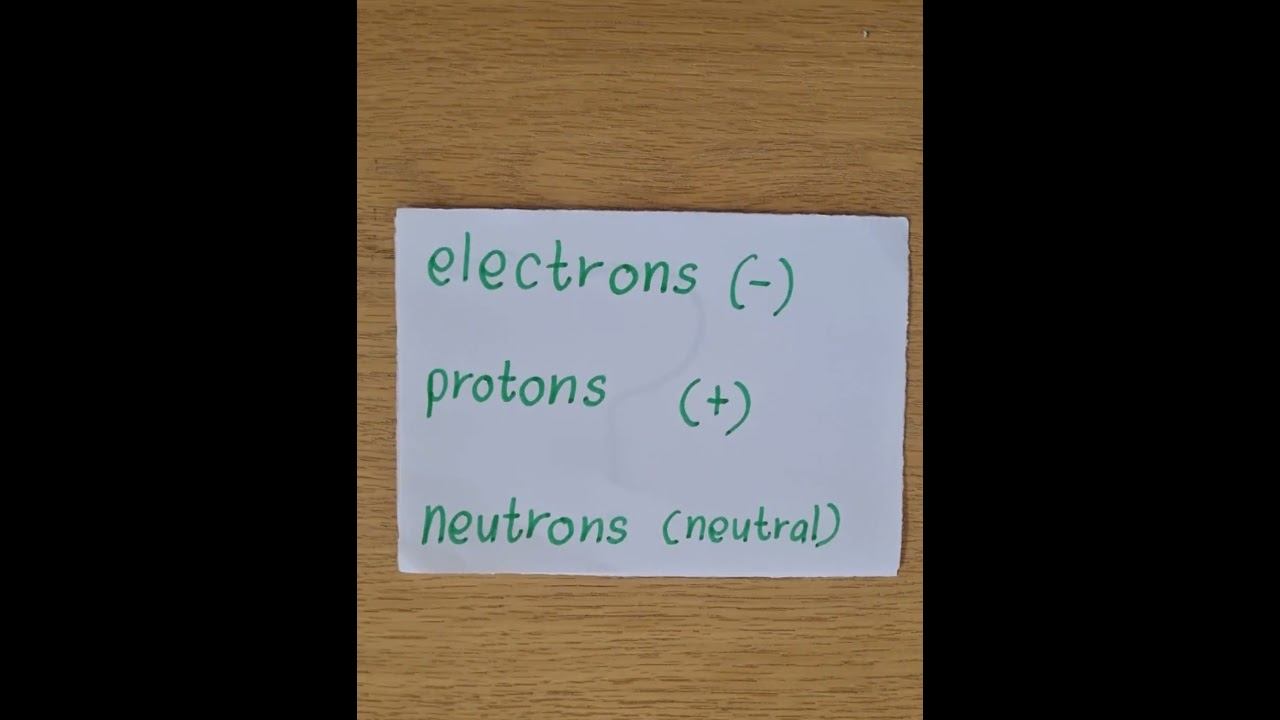 electrons (-)
protons (+)
neutrons (neutral)